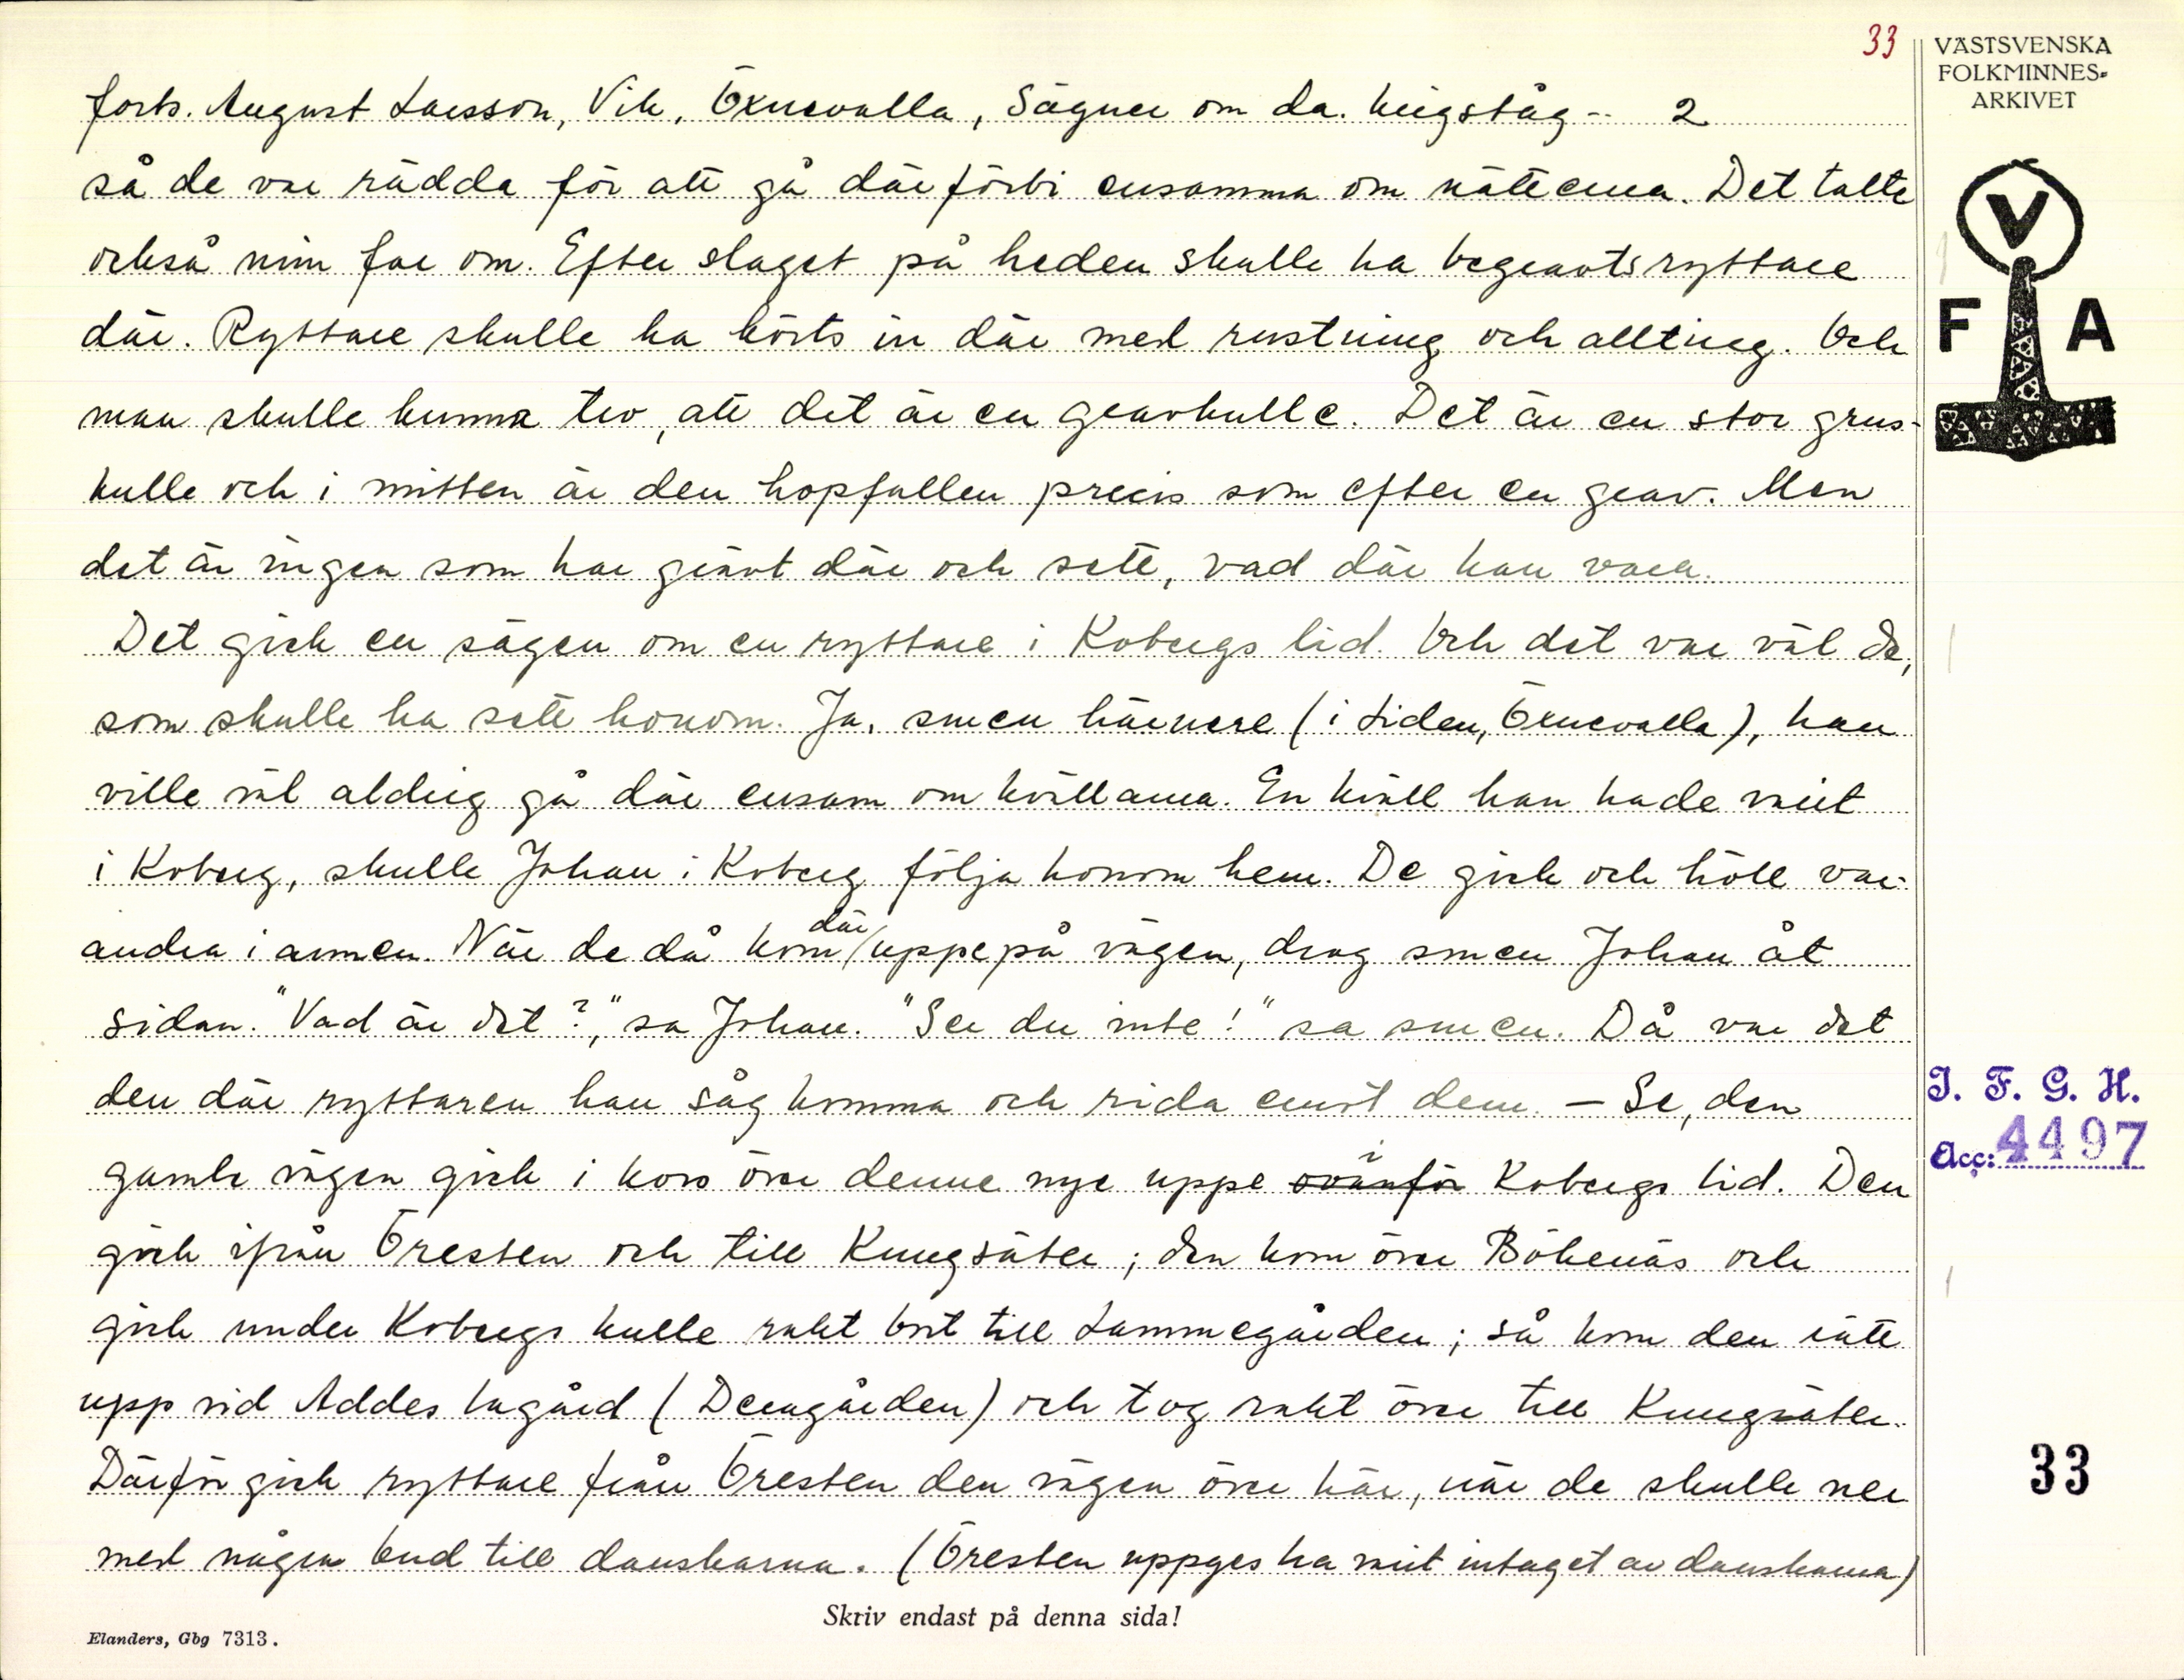 33
VÄSTSVENSKA
FOLKMINNES-
ARKIVET
forts. August Larsson, Vik, Öxnevalla, Sägner om da. krigståg -- 2
så de var rädda för att gå där förbi ensamma om nätterna. Det talte
också min far om. Efter slaget på heden skulle ha begravts ryttare
där. Ryttare skulle ha körts in där med rustning och allting. Och
man skulle kunna tro, att det är en gravkulle. Det är en stor grus-
kulle och i mitten är den hopfallen precis som efter en grav. Men
det är ingen som har grävt där och sett, vad där kan vara.
Det gick en sägen om en ryttare i Kobergs lid. Och det var väl de,
som skulle ha sett honom. Ja, smen härnere (i Liden, Öxnevalla), han
ville väl aldrig gå där ensam om kvällarna. En kväll han hade varit
i Koberg, skulle Johan i Koberg följa honom hem. De gick och höll var-
andra i armen. När de då kom där uppe på vägen, drog smen Johan åt
sidan. "Vad är det?," sa Johan. "Ser du inte!" sa smen. Då var det
den där ryttaren han såg komma och rida emot dem. – Se, den
gamle vägen gick i kors över denne nye uppe ovanför i Kobergs lid. Den
gick ifrån Öresten och till Kungsäter; den kom över Bökenäs och
gick under Kobergs kulle rakt bort till Lammegården; så kom den rätt
upp vid Addes lagård (Drengården) och tog rakt över till Kungsäter.
Därför gick ryttare från Öresten den vägen över här, när de skulle ner
med någon bud till danskarna. (Öresten uppges ha varit intaget av danskarna)
Skriv endast på denna sida!
Elanders, Gbg 7313.
V
F A
I. F. G. H.
Acc: 4497
33